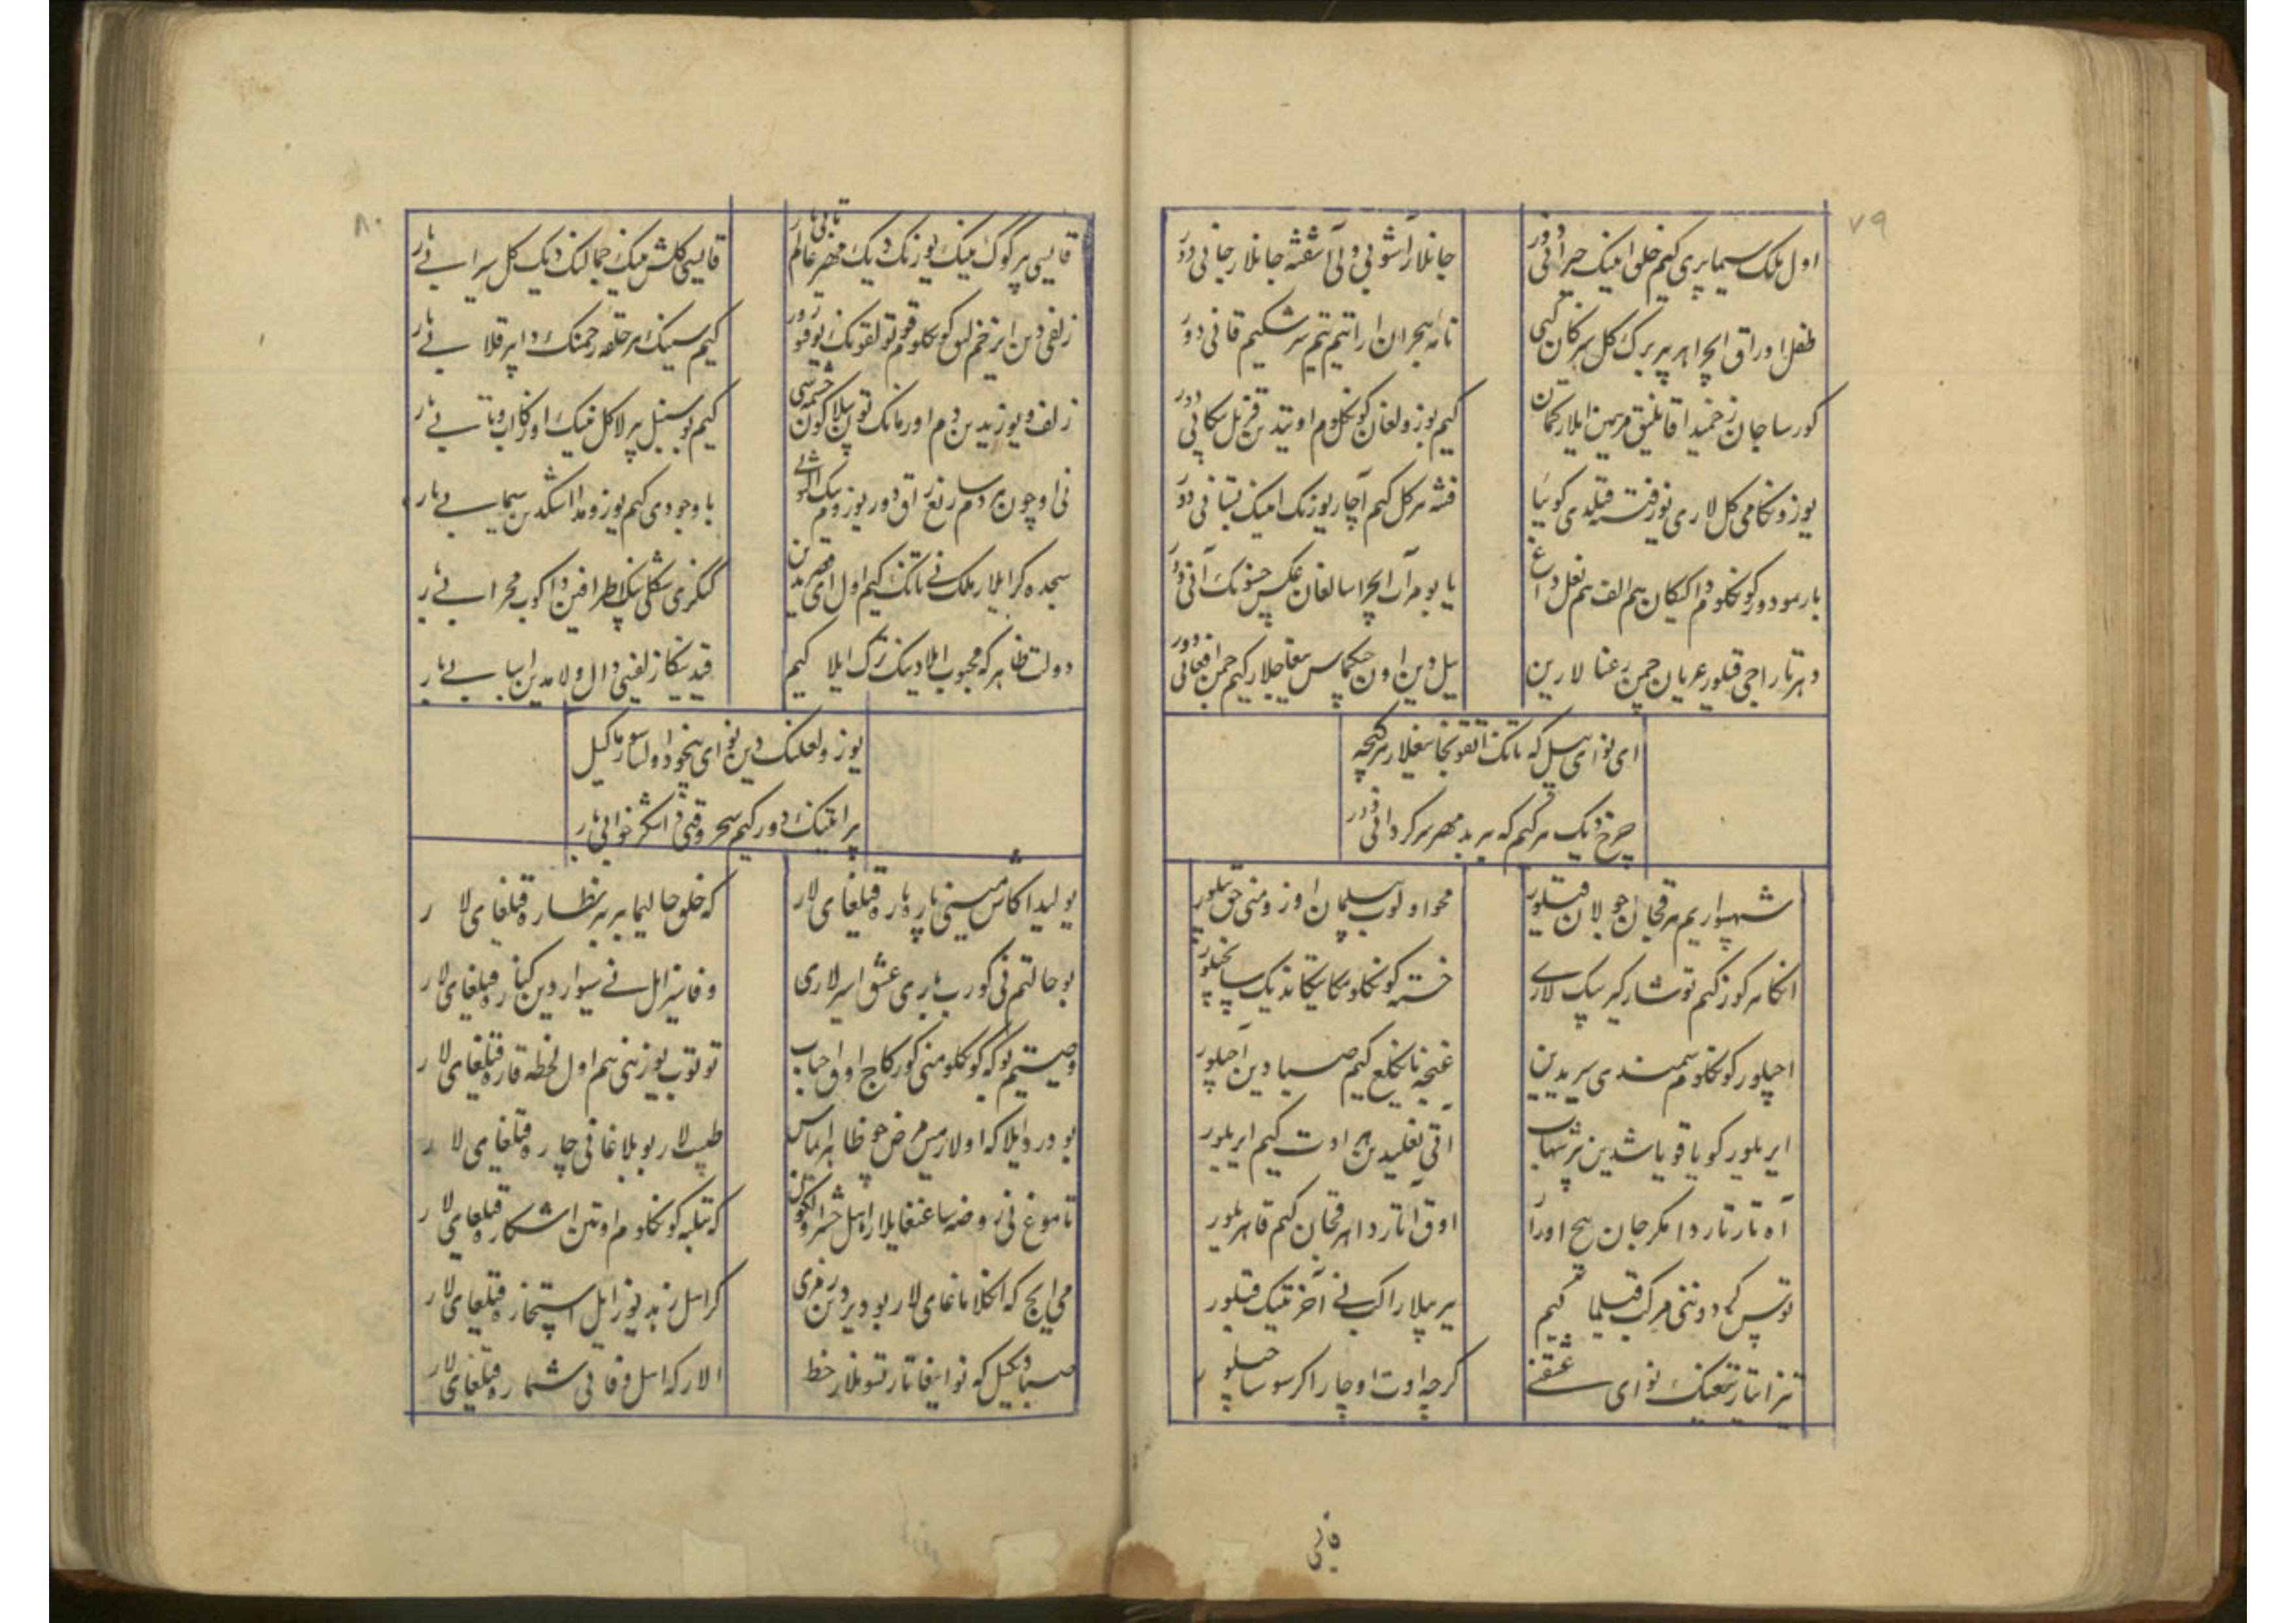 ٧٩
اول ملک سیما پری کیم خلق انینک حیرانی دور
جانلار آشوبی و لی آشفته جانلار جانی دور
طفل اوراق ایچرا هر بر برک کل یرکان کبی
تا نه هجران ارا تیم تیم سرشکیم قانی دور
کورسا جان زخمیدا قانلیق مرهمین ایلار کمان
کیم بوزولغان کونکلوم اوتیدین قزیل پیکانی دور
یوزونکا می کل لاری نوزفتنه قیلدی کوییا
فتنه هر کل کیم آچار یوزنک انینک بستانی دور
بارمودور کونکلومدا تیککان هم الف هم نعل داغ
یا بو مرآت ایچرا سالغان عکس حسنونک آنی دور
دهر تاراجی قیلور عریان چمن رعنا لارین
ییل دین اون چیکماس یغاچلار کیم چمن افغانی دور
ای نوای ییل که تانک اتقونچا یغلار هر کیچه
چرخ دیک هر کیم که بیر بدمهر سرکردانی دور
شهسواریم هر قچان جولان قیلور
محو اولوب یلمان اوزومنی حق بیلور
انکا هر کوز کیم توشار کیرپیک لاری
خسته کونکلومکا تیکاندیک سانچیلور
اچیلور کونکلوم سمندی یریدین
غنچه نانکلیغ کیم صبا دین آچیلور
ایریلور کویا قویاشدین بر شهاب
آتی نعلیدین هر اوت کیم ایریلور
آه تارتاردا مکر جان هیچ اورا
اوق آتاردا هر قچان کیم قاهریلور
توتس کردونی مرکب قیلما کیم
بیر ییلارا کب نی آخر تینک قیلور
تیز ایتار تیغینک نوای عشقنی
کرچه اوت اوچار اکر سو ساچیلور
فانی
٨٠
قایسی بر کوک نینک یوزنک دیک مهر عالم تابی بار
قایسی کلشن نینک جمالنک دیک کل سیرابی بار
زلفی دین ایر زخم لیق کونکلوم توتولقونک یوقتور
کیم سینینک هر حلقه رحمنک دا بیر قلابی بار
زلف و یوزیدین دم اورمانک توپلا کون چشمه سی
کیم بو سنبل بیرلا کل نینک اوزکا اب و تابی بار
نی اوچون هر دم سارغراق دور یوزوم اشکی
با وجودی کیم یوزومدا اشکدین سیمابی بار
سجده کر ایلار ملک نی تانک کیم اول ای قصریدین
کنکری شکلی بیله اطرافیندا کوب محرابی بار
دولت ظاهر که محبوب ایلادینک ترک ایلا کیم
قیدینکا زلفینی دال و لامدین اسبابی بار
یوز و لعلینک دین نوای بیخود اولسا سورما کیل
پر ایلتینک دور کیم سحر وقتی شکر خوابی بار
یولیدا کاش مینی پاره پاره قیلغای لار
که خلق حالیما بیر بیر نظاره قیلغای لار
بو حالتیم نی کوروب باری عشق اسیرلاری
وفاسیز ایل نی سیوار دین کناره قیلغای لار
وصیتیم بو که کونکلومنی کورکاچ اوق احباب
توتوب یوزینی هم اول لحظه قاره قیلغای لار
بو درد ایلا که اولارمین مرض چو ظاهر ایماس
طبیب لار بو بلاغا نی چاره قیلغای لار
تاموغ نی روضه ساغنغایلار اهل حشر الکون
که تیلبه کونکلوم اوتین اشکاره قیلغای لار
می ایچ که انکلاماغای لار بو دیردین رمزی
کر اهل زهد یوز ایل استخاره قیلغای لار
صبا دیکیل که نوایغا تارتسونلار خط
الار که اهل وفا نی شماره قیلغای لار